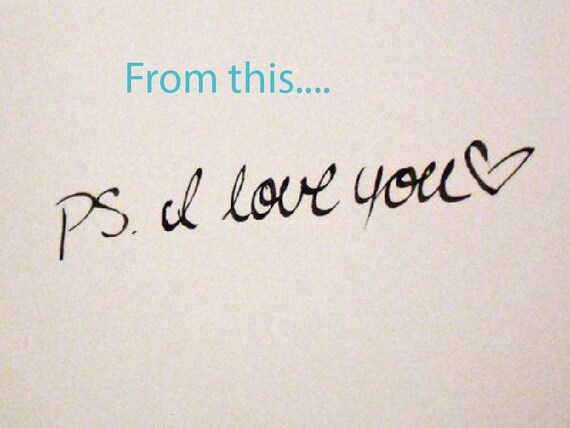 From this....
PS. I love you♡